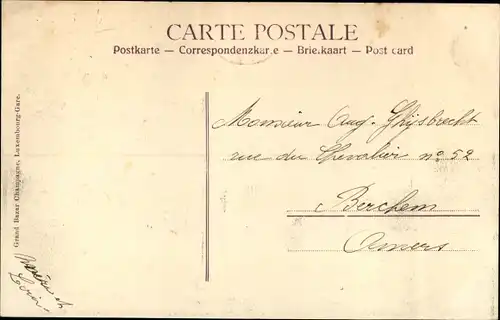 CARTE POSTALE
Postkarte — Correspondenzkarte — Briefkaart — Post card
Grand Bazar Champagne, Luxembourg-Gare.
Monsieur Aug. Ghysbrecht
rue du Chevalier no 52
Berchem
Anvers